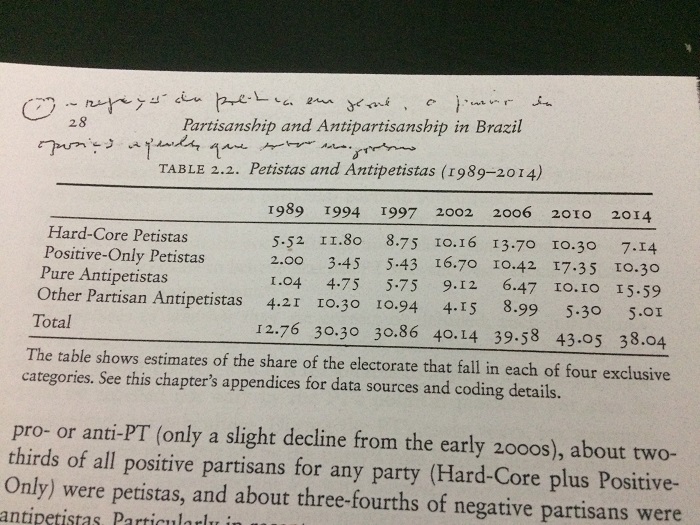 em
28 Partisanship and Antipartisanship in Brazil
que
TABLE 2.2. Petistas and Antipetistas (1989–2014)
1989 1994 1997 2002 2006 2010 2014
Hard-Core Petistas 5.52 11.80 8.75 10.16 13.70 10.30 7.14
Positive-Only Petistas 2.00 3.45 5.43 16.70 10.42 17.35 10.30
Pure Antipetistas 1.04 4.75 5.75 9.12 6.47 10.10 15.59
Other Partisan Antipetistas 4.21 10.30 10.94 4.15 8.99 5.30 5.01
Total 12.76 30.30 30.86 40.14 39.58 43.05 38.04
The table shows estimates of the share of the electorate that fall in each of four exclusive
categories. See this chapter's appendices for data sources and coding details.
pro- or anti-PT (only a slight decline from the early 2000s), about two-
thirds of all positive partisans for any party (Hard-Core plus Positive-
Only) were petistas, and about three-fourths of negative partisans were
antipetistas. Particularly in